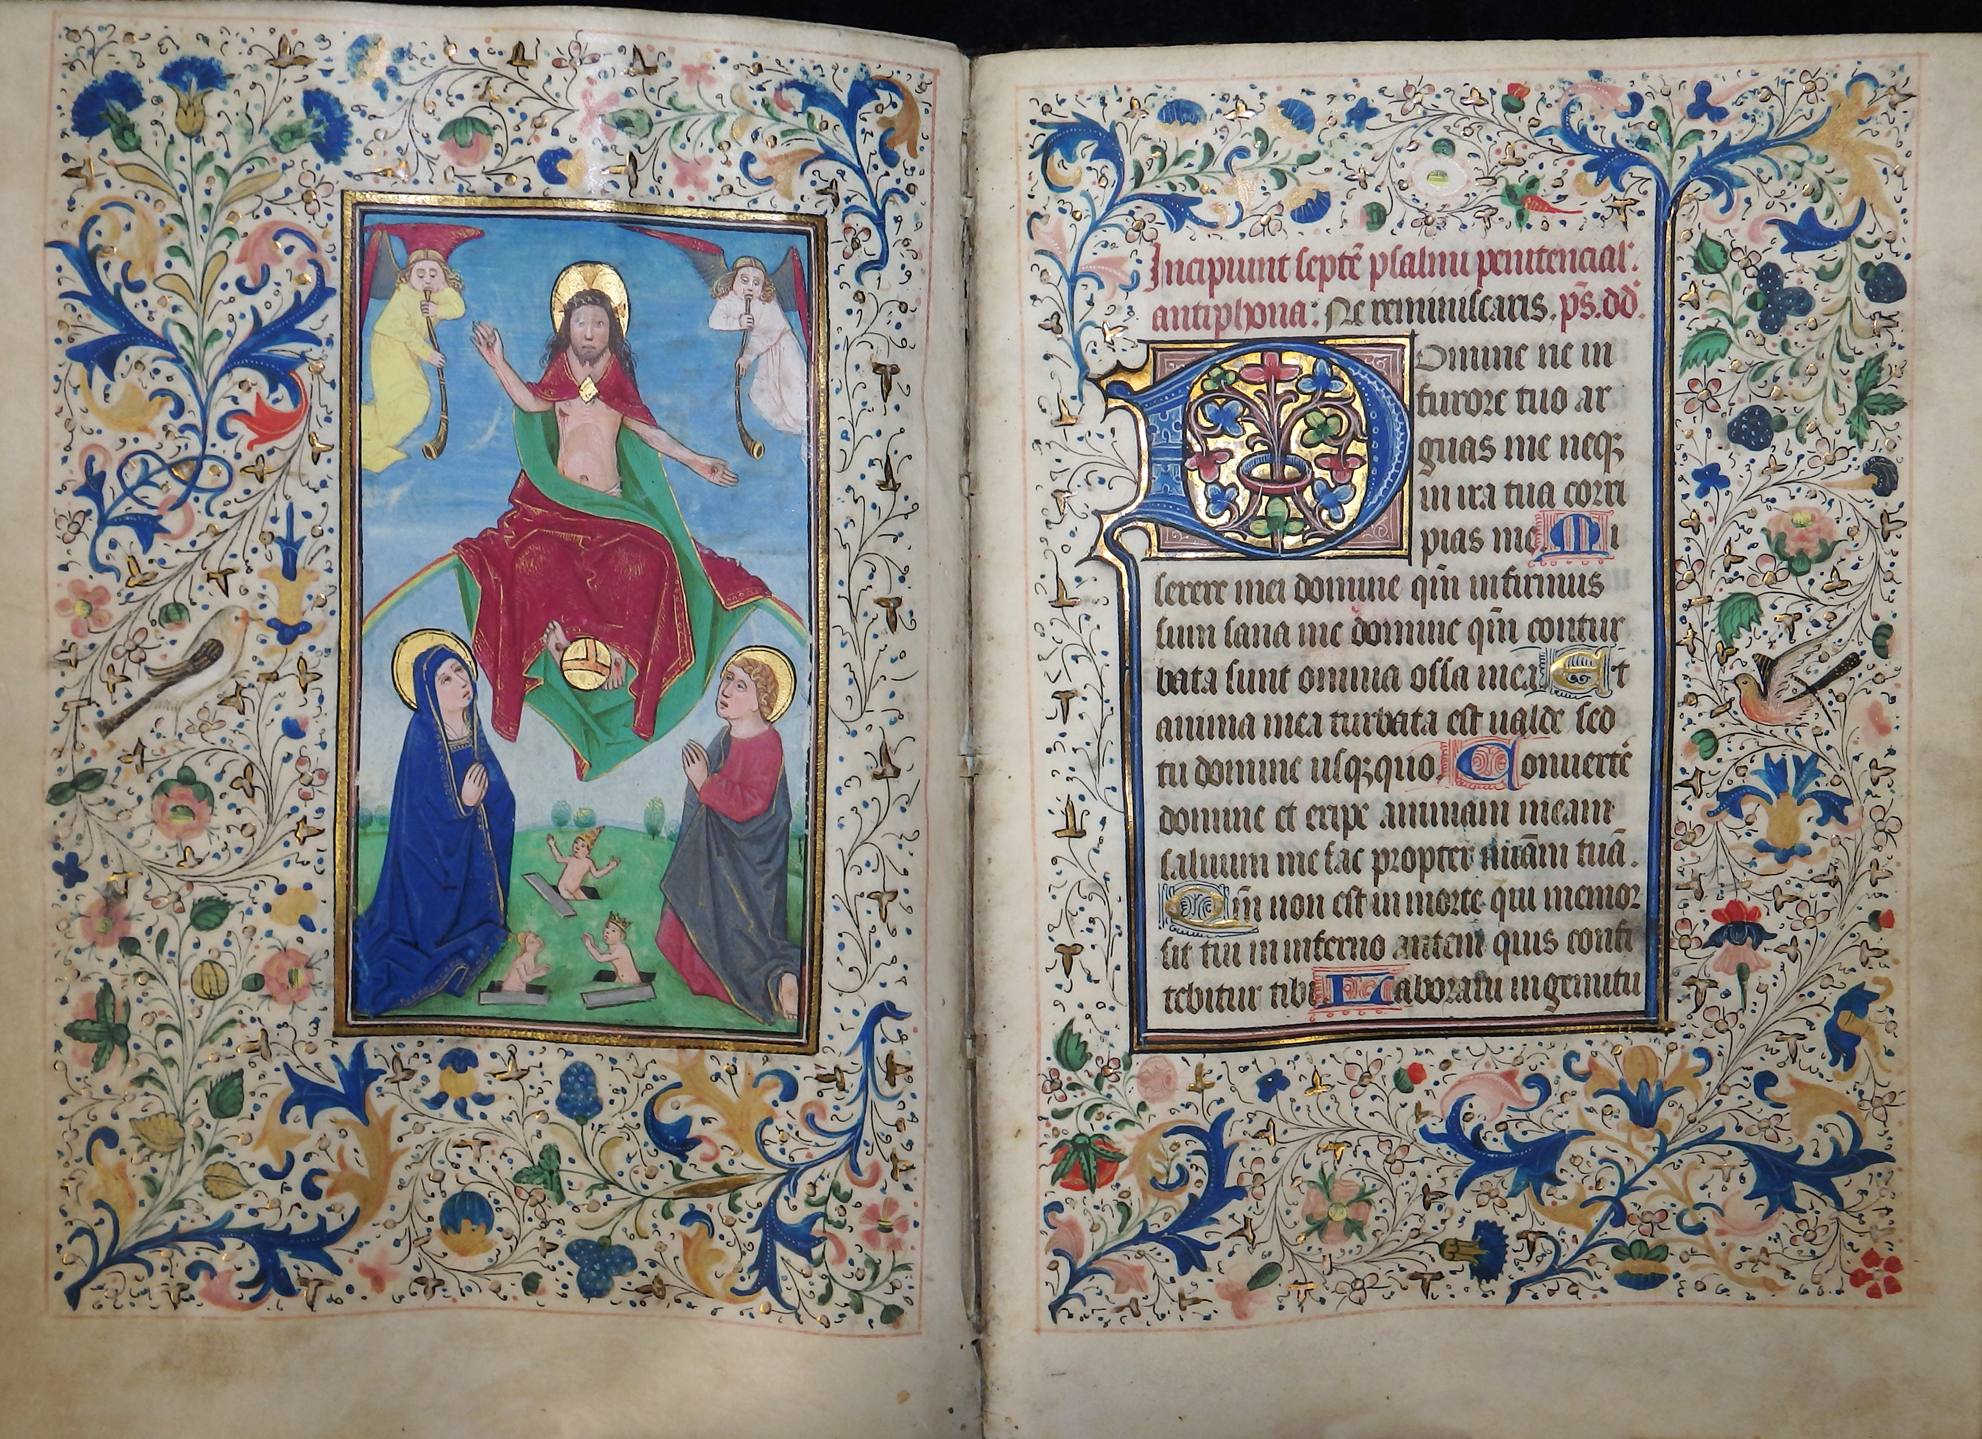 Incipiunt septē psalmi penitencial':
antiphona: Ne reminiscaris. p̄s. dd̄.
Domine ne in
furore tuo ar
guas me neqꝫ
in ira tua corri
pias me Mi
serere mei domine qm̄ infirmus
sum sana me domine qm̄ contur
bata sunt omnia ossa mea Et
anima mea turbata est ualde sed
tu domine usqꝫquo Conuertē
domine et eripe animam meam
saluum me fac propter miām tuā.
Qm̄ non est in morte qui memor
sit tui in inferno autem quis confi
tebitur tibi Laboraui in gemitu